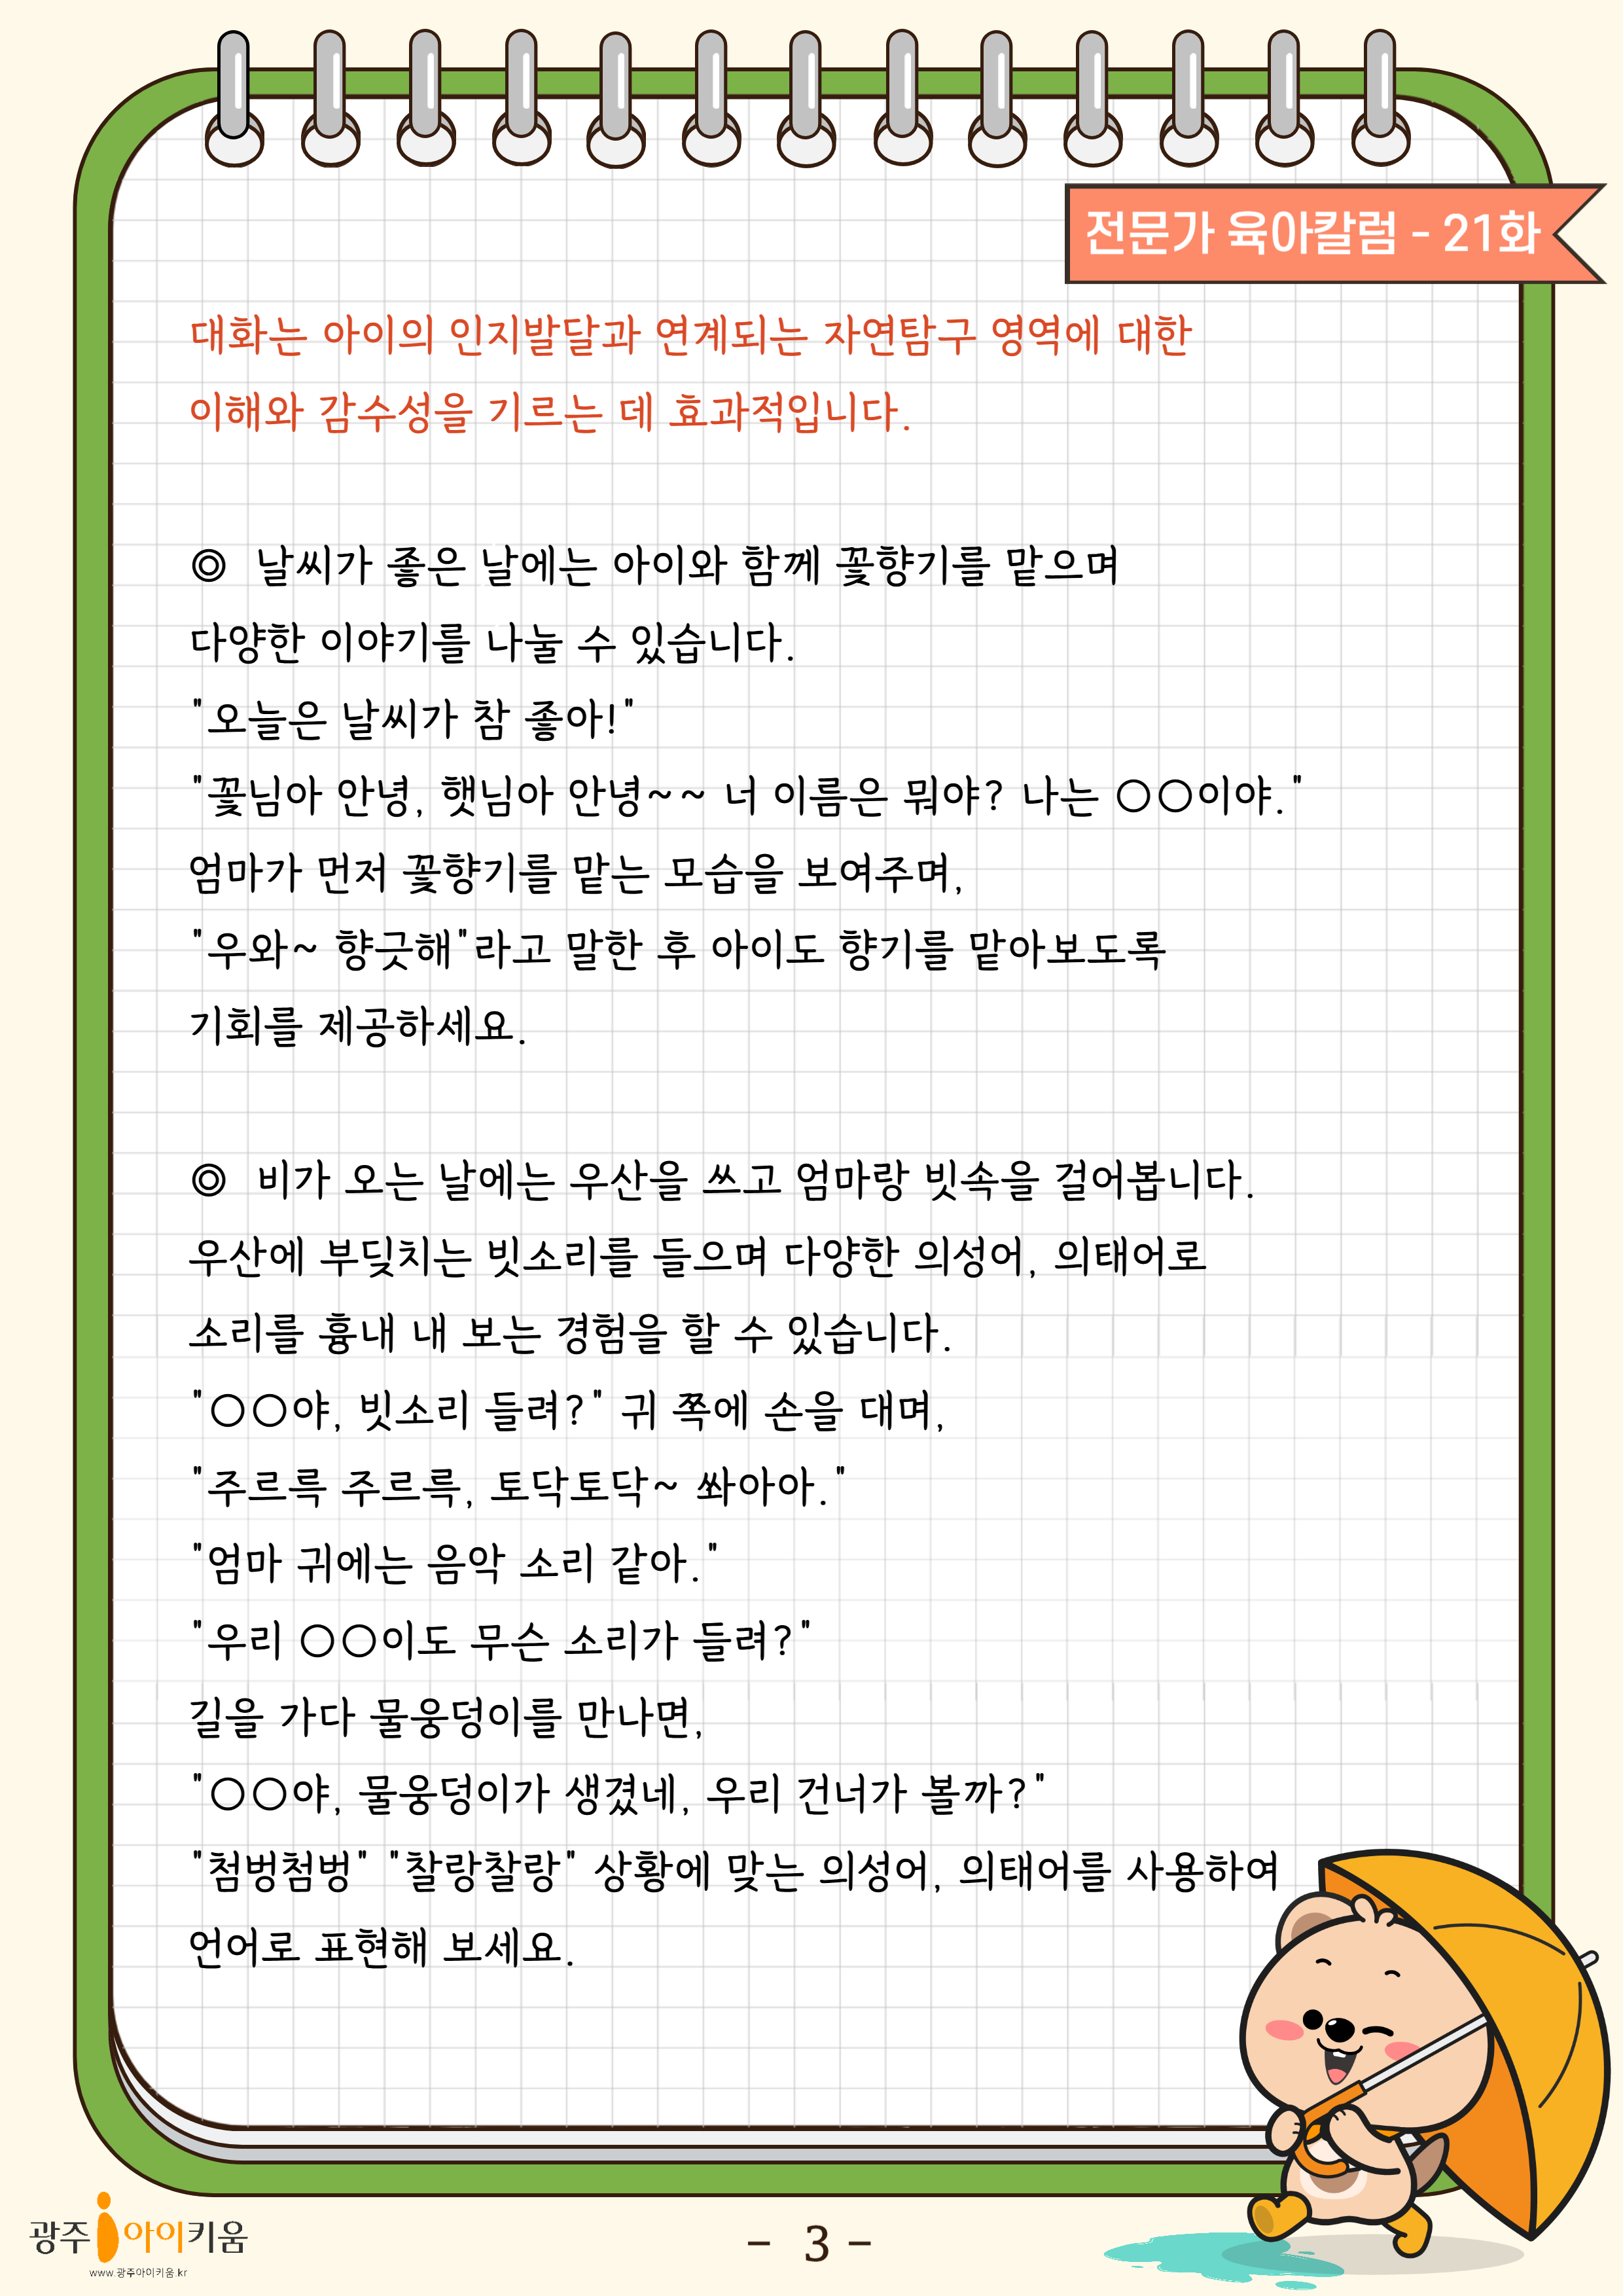 전문가 육아칼럼 - 21화
대화는 아이의 인지발달과 연계되는 자연탐구 영역에 대한
이해와 감수성을 기르는 데 효과적입니다.
◎ 날씨가 좋은 날에는 아이와 함께 꽃향기를 맡으며
다양한 이야기를 나눌 수 있습니다.
"오늘은 날씨가 참 좋아!"
"꽃님아 안녕, 햇님아 안녕~~ 너 이름은 뭐야? 나는 ○○이야."
엄마가 먼저 꽃향기를 맡는 모습을 보여주며,
"우와~ 향긋해"라고 말한 후 아이도 향기를 맡아보도록
기회를 제공하세요.
◎ 비가 오는 날에는 우산을 쓰고 엄마랑 빗속을 걸어봅니다.
우산에 부딪치는 빗소리를 들으며 다양한 의성어, 의태어로
소리를 흉내 내 보는 경험을 할 수 있습니다.
"○○야, 빗소리 들려?" 귀 쪽에 손을 대며,
"주르륵 주르륵, 토닥토닥~ 쏴아아."
"엄마 귀에는 음악 소리 같아."
"우리 ○○이도 무슨 소리가 들려?"
길을 가다 물웅덩이를 만나면,
"○○야, 물웅덩이가 생겼네, 우리 건너가 볼까?"
"첨벙첨벙" "찰랑찰랑" 상황에 맞는 의성어, 의태어를 사용하여
언어로 표현해 보세요.
광주 아이키움
www.광주아이키움.kr
- 3 -